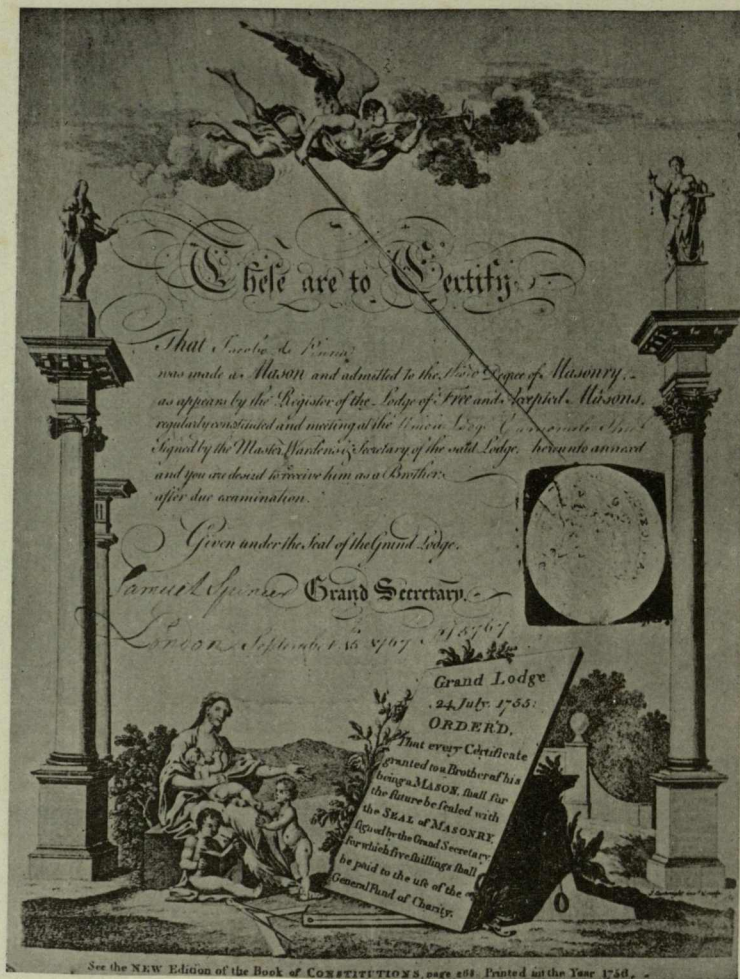 These are to Certify
That Jacob de
was made a Mason and admitted to the third Degree of Masonry,
as appears by the Register of the Lodge of Free and Accepted Masons,
regularly constituted and meeting at the Union Lodge
Signed by the Master Wardens & Secretary of the said Lodge hereunto annex'd
and you are desir'd to receive him as a Brother
after due examination.
Given under the Seal of the Grand Lodge.
Samuel Spencer Grand Secretary.
London September 15 1767 5767
Grand Lodge
24 July. 1755:
ORDER'D,
That every Certificate
granted to a Brother of his
being a MASON, shall for
the future be sealed with
the SEAL of MASONRY,
signed by the Grand Secretary,
for which five shillings shall
be paid to the use of the
General Fund of Charity.
See the NEW Edition of the Book of CONSTITUTIONS, page 268 Printed in the Year 1756.